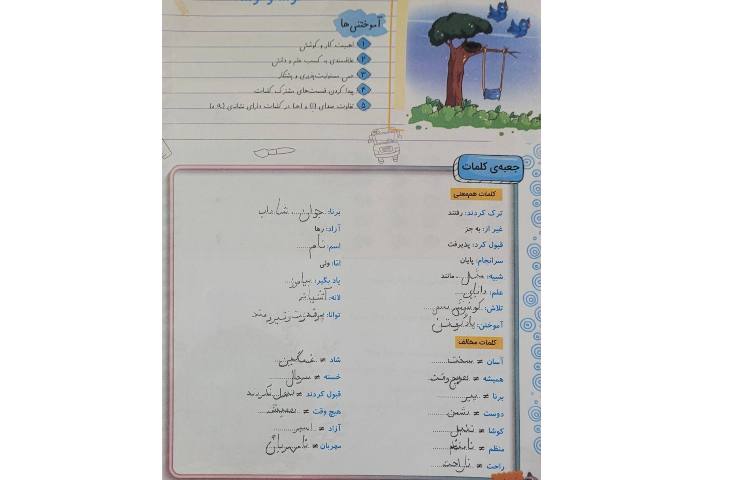 آموختنی‌ها
۱ اهمیت کار و کوشش
۲ علاقمندی به کسب علم و دانش
۳ حس مسئولیت‌پذیری و پشتکار
۴ پیدا کردن قسمت‌های مشترک کلمات
۵ تفاوت صدای (اِ) و (ه) در کلمات دارای نشانه‌ی (ه، ـه)
جعبه‌ی کلمات
کلمات هم‌معنی
ترک کردند: رفتند
غیر از: به جز
قبول کرد: پذیرفت
سرانجام: پایان
شبیه: مثل مانند
علم: دانایی
تلاش: کوشش سعی
آموختن: یاد گرفتن
برنا: جوان شاداب
آزاد: رها
اسم: نام
امّا: ولی
یاد بگیر: بیاموز
لانه: آشیانه
توانا: پرقدرت نیرومند
کلمات مخالف
آسان ≠ سخت
همیشه ≠ هیچ وقت
برنا ≠ پیر
دوست ≠ دشمن
کوشا ≠ تنبل
منظم ≠ نامنظم
راحت ≠ ناراحت
شاد ≠ غمگین
خسته ≠ سرحال
قبول کردند ≠ قبول نکردند
هیچ وقت ≠ همیشه
آزاد ≠ اسیر
مهربان ≠ نامهربان